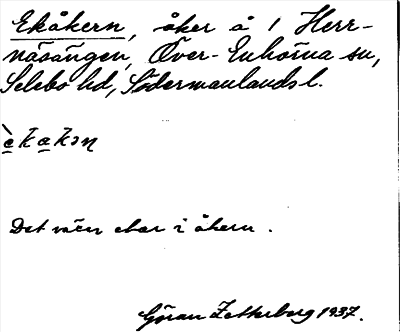 Ekåkern, åker å 1 Herr-
näsängen, Över-Enhörna sn,
Selebo hd, Södermanlands l.
èkakɔn
Det växer ekar i åkern.
Göran Zetterberg 1937.